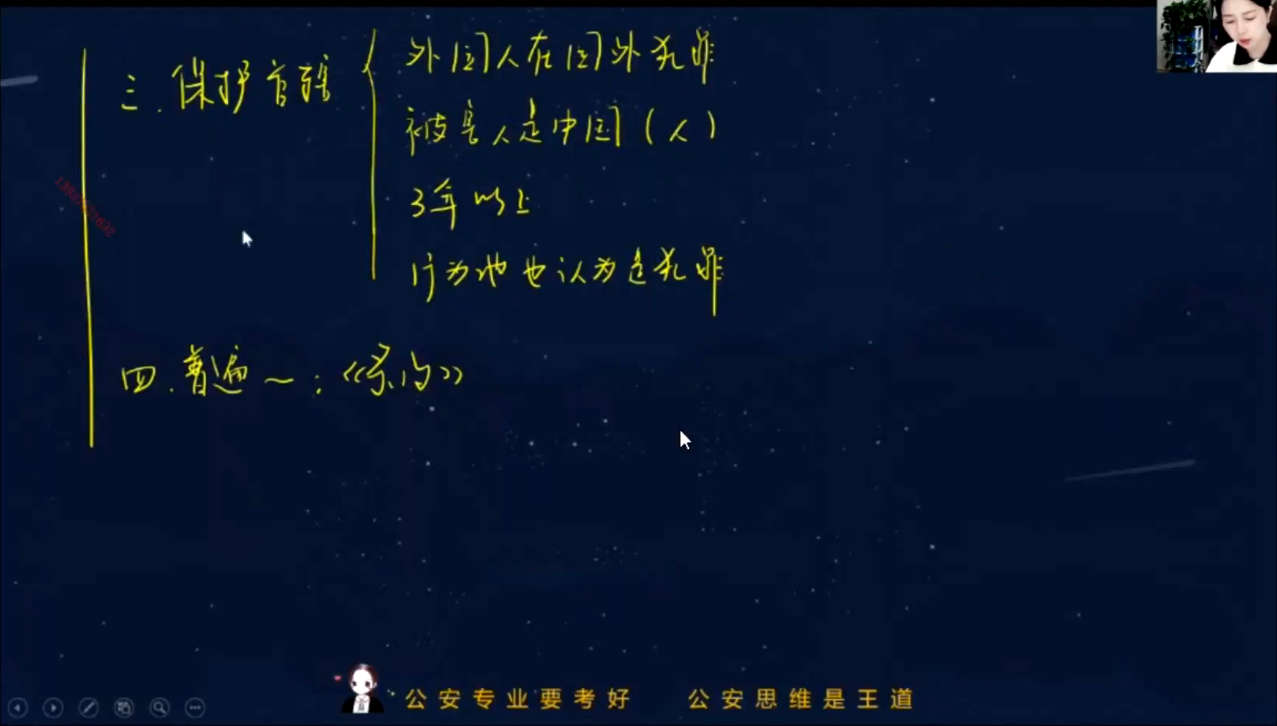 三. 保护管辖
外国人在国外犯罪
被害人是中国(人)
3年以上
行为地也认为是犯罪
四. 普遍~:《条约》
公安专业要考好 公安思维是王道